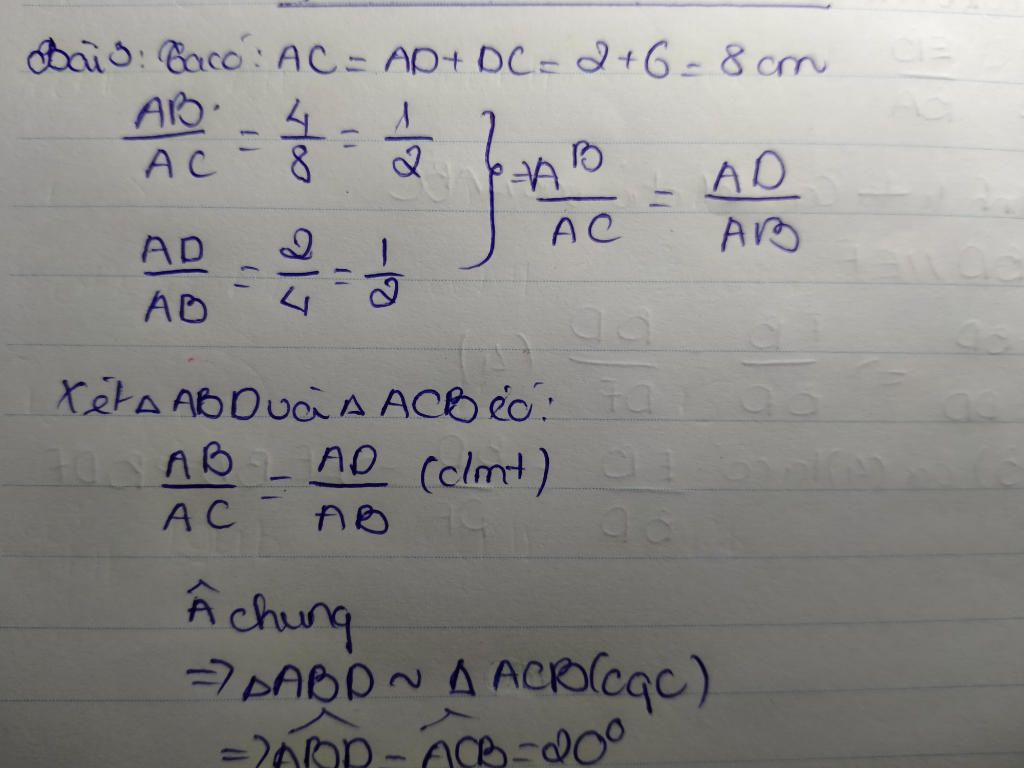 Bài 3: Ta có: AC = AD + DC = 2 + 6 = 8 cm
AB/AC = 4/8 = 1/2
AD/AB = 2/4 = 1/2
} => AB/AC = AD/AB
Xét Δ ABD và Δ ACB có:
AB/AC = AD/AB (cmt)
Â chung
=> ΔABD ~ Δ ACB (cgc)
=> ABD = ACB = 20°